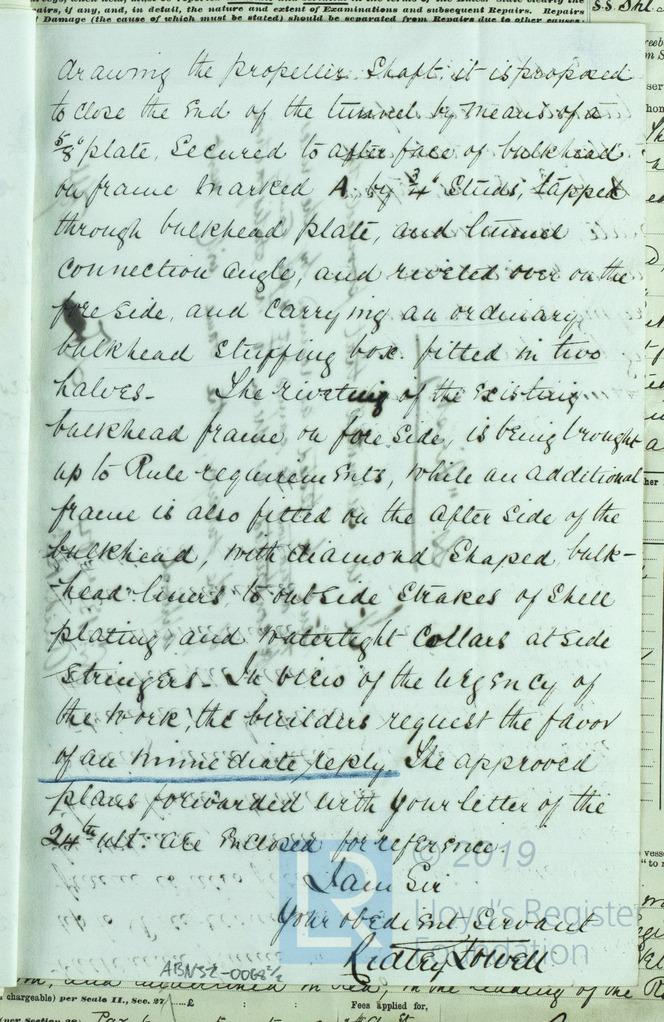 airs, if any, and, in detail, the nature and extent of Examinations and subsequent Repairs. Repairs
f Damage (the cause of which must be stated) should be separated from Repairs due to other causes:
S.S.
drawing the propeller shaft, it is proposed
to close the End of the tunnel by means of a
5/8" plate, Secured to after face of bulkhead
on frame marked A. by 3/4" Studs, tapped
through bulkhead plate, and tunnel
connection angle, and riveted over on the
fore side, and carrying an ordinary
bulkhead stuffing box fitted in two
halves. The riveting of the existing
bulkhead frame on fore side, is being brought
up to Rule requirements, while an additional
frame is also fitted on the after side of the
bulkhead, with diamond shaped bulk-
head liners to outside strakes of shell
plating, and watertight collars at side
stringers. In view of the urgency of
the work, the builders request the favor
of an immediate reply. The approved
plans forwarded with your letter of the
24th ult. are enclosed for reference
© 2019
I am Sir
Your obedient Servant
Lloyd's Register
Foundation
LR
Ridley Lowell
ABN52-0068½
chargeable) per Scale II., Sec. 27 £
Fees applied for,